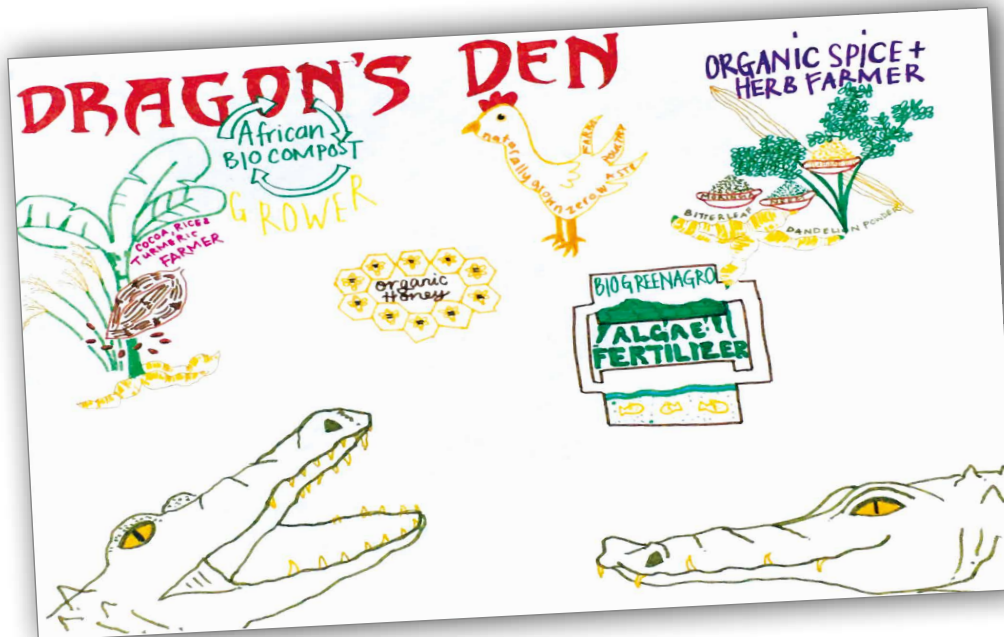 DRAGON'S DEN
African
BIO COMPOST
GROWER
COCOA, RICE &
TURMERIC
FARMER
organic
Honey
naturally grown zero waste
FARM
POULTRY
ORGANIC SPICE +
HERB FARMER
MORINGA
BITTERLEAF
DANDELION POWDER
BIOGREENAGRO
ALGAE
FERTILIZER